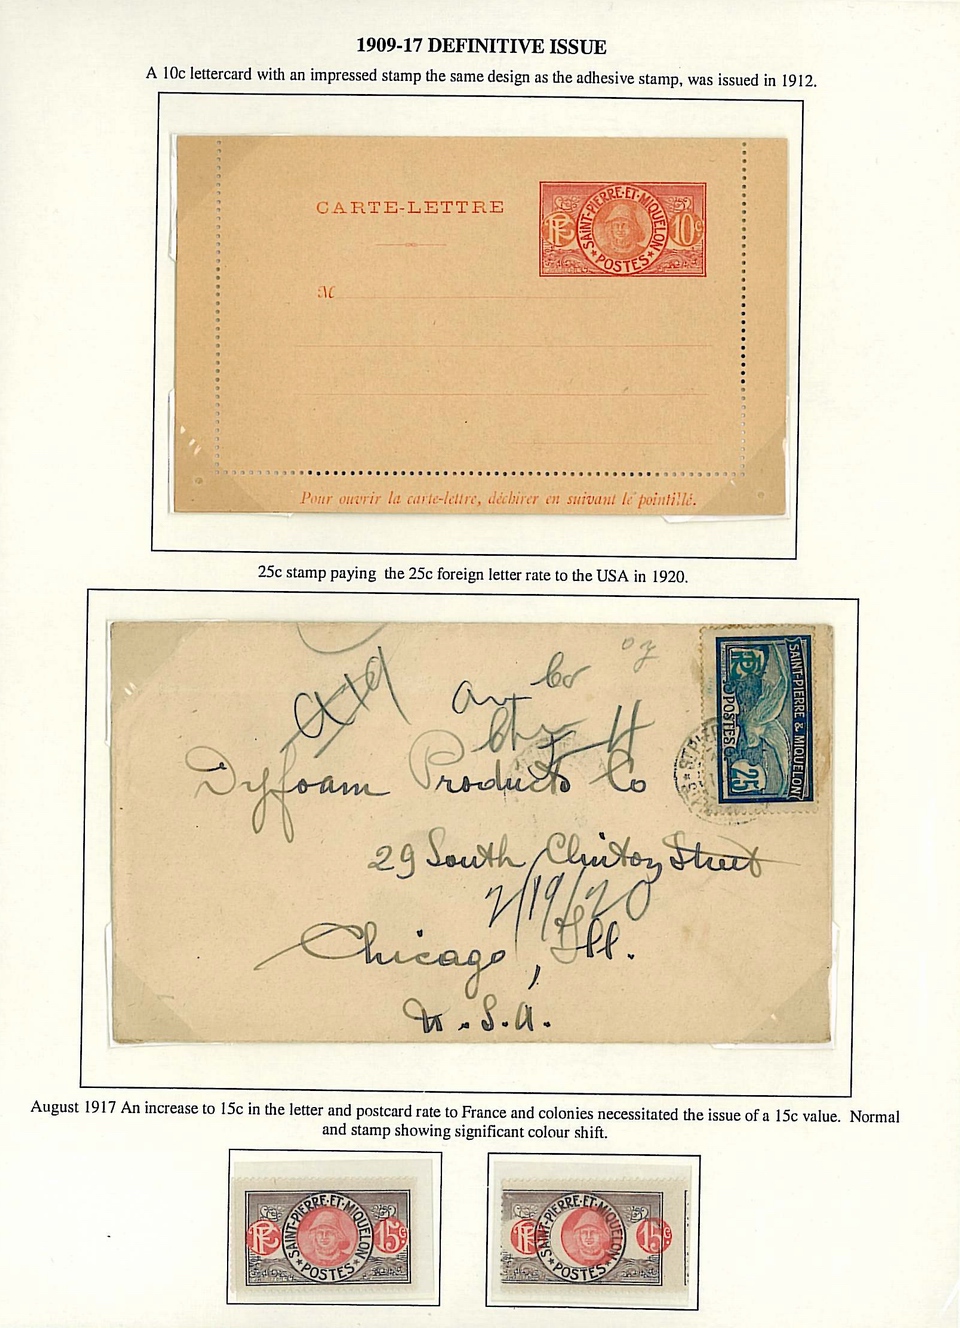 1909-17 DEFINITIVE ISSUE
A 10c lettercard with an impressed stamp the same design as the adhesive stamp, was issued in 1912.
CARTE-LETTRE
SAINT-PIERRE-ET-MIQUELON
RF
10c
★POSTES★
M
Pour ouvrir la carte-lettre, déchirer en suivant le pointillé.
25c stamp paying the 25c foreign letter rate to the USA in 1920.
SAINT-PIERRE & MIQUELON
RF
POSTES
25
Dryfoam Products Co
29 South Clinton Street
2/19/20
Chicago, Ill.
U.S.A.
August 1917 An increase to 15c in the letter and postcard rate to France and colonies necessitated the issue of a 15c value. Normal
and stamp showing significant colour shift.
SAINT-PIERRE-ET-MIQUELON
RF
15c
★POSTES★
SAINT-PIERRE-ET-MIQUELON
RF
15c
★POSTES★